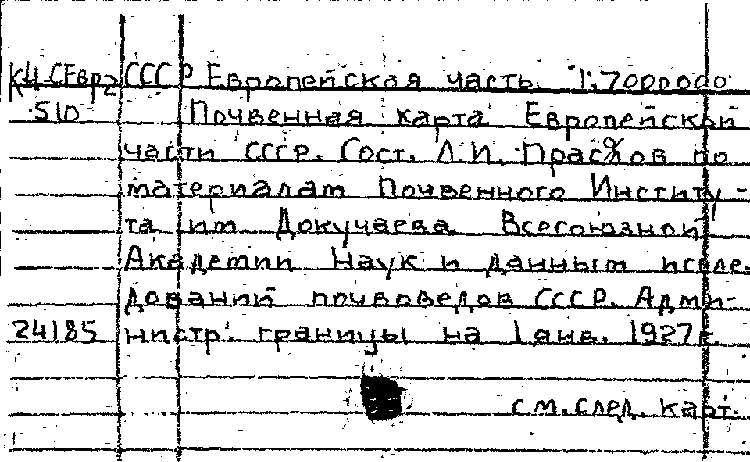 К4 СЕвр2 СССР Европейская часть 1:7000000
510 Почвенная карта Европейской
части СССР. Сост. Л.И. Прасолов по
материалам Почвенного Институ-
та им. Докучаева Всесоюзной
Академии Наук и данным иссле-
дований почвоведов СССР. Адми-
24185 нистр. границы на 1 янв. 1927г.
см. след. карт.